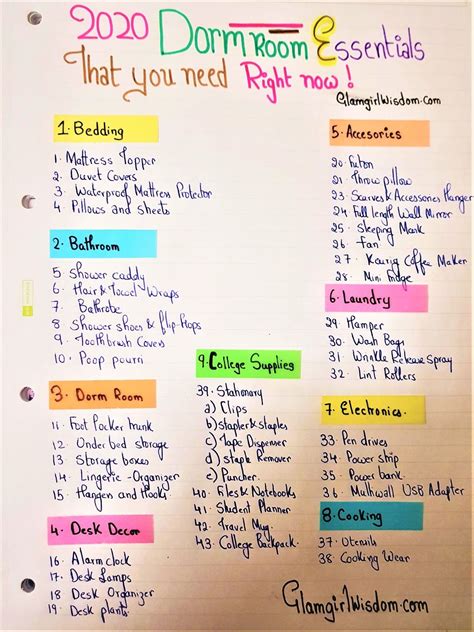 2020 Dorm Room Essentials
That you need Right now!
GlamgirlWisdom.com
1. Bedding
1. Mattress Topper
2. Duvet Covers
3. Waterproof Mattress Protector
4. Pillows and sheets
2. Bathroom
5 Shower caddy
6. Hair & Towel Wraps
7. Bathrobe
8 Shower shoes & flip-flops
9. Toothbrush Covers
10. Poop pourri
3. Dorm Room
11. Foot Locker trunk
12. Under bed storage
13. Storage boxes
14. Lingerie-Organizer
15. Hangers and Hooks
4. Desk Decor
16. Alarm clock
17. Desk Lamps
18 Desk Organizer
19. Desk plants
9. College Supplies
39. Stationary
a) Clips
b) stapler & staples
c) Tape Dispenser
d) staple Remover
e) Puncher.
40. Files & Notebooks
41. Student Planner
42. Travel Mug
43. College Backpack.
5. Accesories
20. Futon
21. Throw pillow
23. Scarves & Accessories Hanger
24. Full length Wall Mirror
25. Sleeping Mask
26. Fan
27. Keurig Coffee Maker
28. Mini fridge
6. Laundry
29. Hamper
30. Wash Bags
31. Wrinkle Release Spray
32. Lint Rollers
7. Electronics.
33. Pen drives
34. Power strip
35. Power bank
36. Multiwall USB Adapter
8. Cooking
37. Utensils
38. Cooking Wear
GlamgirlWisdom.com